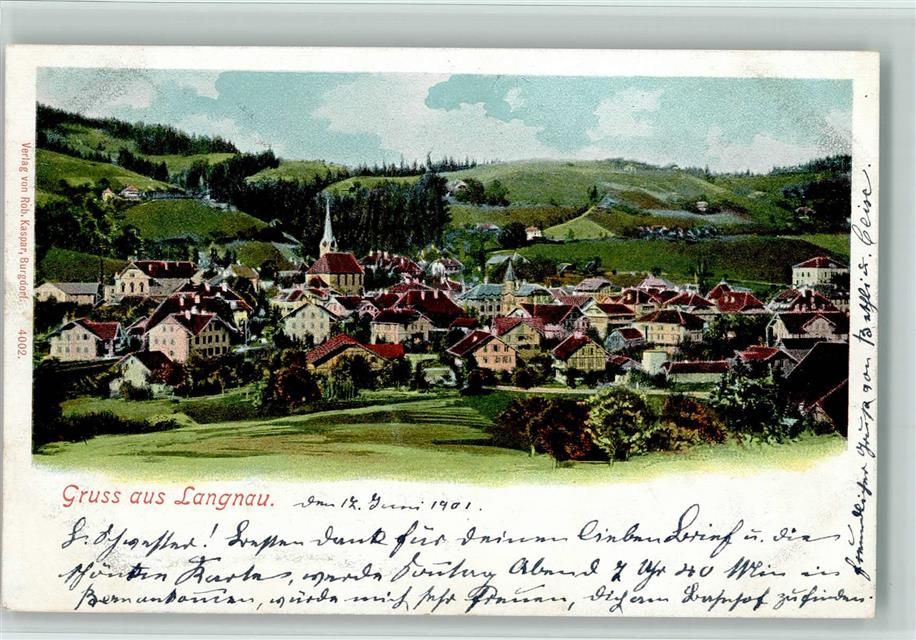 Gruss aus Langnau.
den 12. Juni 1901.
L. Schwester! Besten dank für deinen lieben Brief u. die
schönen Karte, werde Sontag Abend 7 Uhr 40 Min in
Bern ankommen, würde mich sehr freuen, dich am Bahnhof zu finden.
freundlicher Gruss von
Verlag von Rob. Kaspar, Burgdorf. 4002.